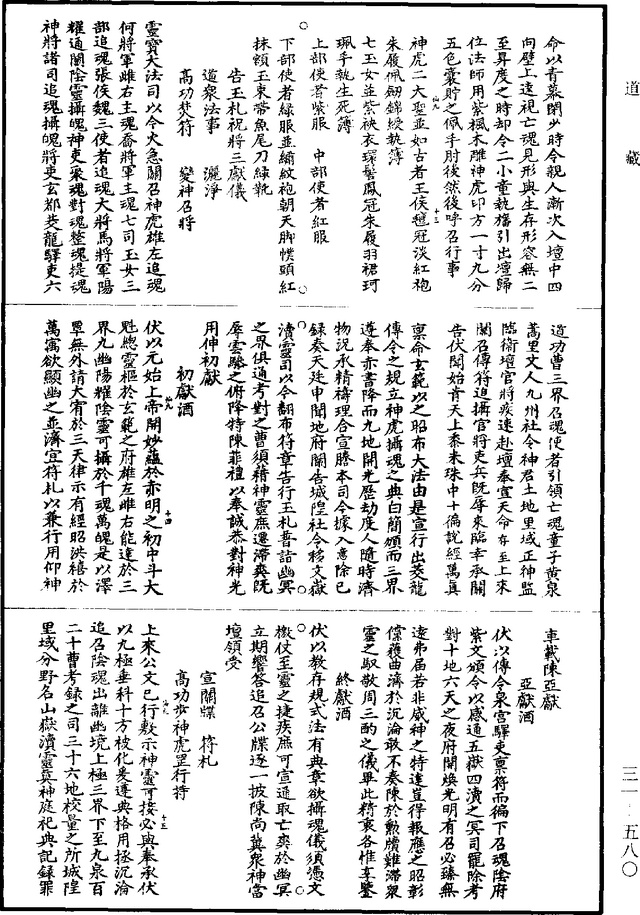 道藏
命以青幕閉少時令親人漸次入壇中四
向壁上遠視亡魂見形與生存形容無二
至昇度之時却令二小童執旛引出壇歸
位法師用紫楓木雕神虎印方一寸九分
五色囊貯之佩手肘後然後呼召行事
神虎二大聖並如古者王侯
朱履佩劒錦綬執簿
七玉女並紫袂衣環髻鳳冠朱履羽裙珂
珮手執生死簿
上部使者紫服　中部使者紅服
下部使者綠服並繡紋袍朝天脚幞頭紅
抹額玉束帶魚尾刀綠靴
告玉札祝將三獻儀
道衆法事　灑淨
高功焚符　變神召將
靈寶大法司以今火急關召神虎雄左追魂
何將軍雌右主魂喬將軍主魂七司玉女三
部追魂張侯魏三使者追魂大將馬將軍陽
耀通關陰靈攝魄神吏聚魂對魂整魂提魂
神將諸司追魂攝魄將吏玄都茭龍驛吏六
道功曹三界召魂使者引領亡魂童子黄泉
蒿里丈人九州社令神君土地里域正神監
臨衛壇官將疾速赴壇奉宣天命存至上來
關召傳符追攝官將吏兵旣辱來臨幸承關
告伏聞始青天上泰米珠中十徧說經萬真
稟命玄範以之昭布大法由是宣行出茭龍
傳令之規立神虎攝魂之典白簡頒而三界
遵奉赤書降而九地開光歷劫度人隨時濟
物況承精禱理合宣謄本司令據入意除已
錄奏天廷申聞地府關告城隍社令移文嶽
瀆靈司以今翻布符章告行玉札普詣幽冥
之界俱通考對之曹須藉神靈庶還滯爽旣
辱雲駿之俯降特陳菲禮以奉誠恭對神光
用伸初獻
初獻酒
伏以元始上帝開妙蘊於赤明之初中斗大
魁總靈樞於玄範之府雄左雌右能達於三
界九幽陽耀陰靈可攝於千魂萬魄是以澤
覃無外請大宥於三天律示有經昭洪禧於
萬寓欲顯幽之並濟宣符札以兼行用仰神
車載陳亞獻
亞獻酒
伏以傳令泉宮驛吏稟符而徧下召魂陰府
紫文頒令以感通五嶽四瀆之冥司罷除考
對十地六天之夜府開煥光明有召必臻無
遠弗屆若非威神之特達豈得報應之昭彰
儻獲曲濟於沉淪敢不奏陳於勳牘難滯衆
靈之馭敬周三酌之儀畢此精衷各惟享鑒
終獻酒
伏以敎存規式法有典章欲攝魂儀須憑文
檄仗至靈之捷疾庶可宣通取亡爽於幽冥
立期響答追召公牒逐一披陳尚冀衆神當
壇領受
宣關牒　符札
高功步神虎罡行持
上來公文已行敷示神靈可接必與奉承伏
以九極垂科十方被化爰遵典格用拯沉淪
追召陰魂出離幽境上極三界下至九泉百
二十曹考錄之司三十六地校量之所城隍
里域分野名山嶽瀆靈莫神庭祀典記錄罪
三一—五八〇